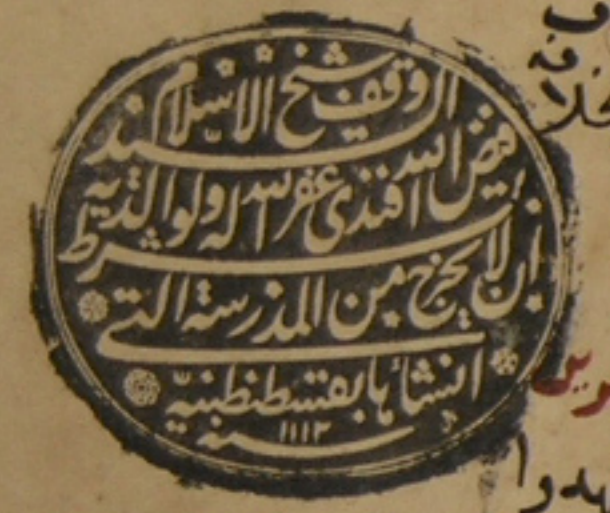 وقف شيخ الاسلام السيد
فيض الله افندى غفر الله له ولوالديه بشرط
أن لا يخرج من المدرسة التى
انشأها بقسطنطنيّة
سنة ١١١٢